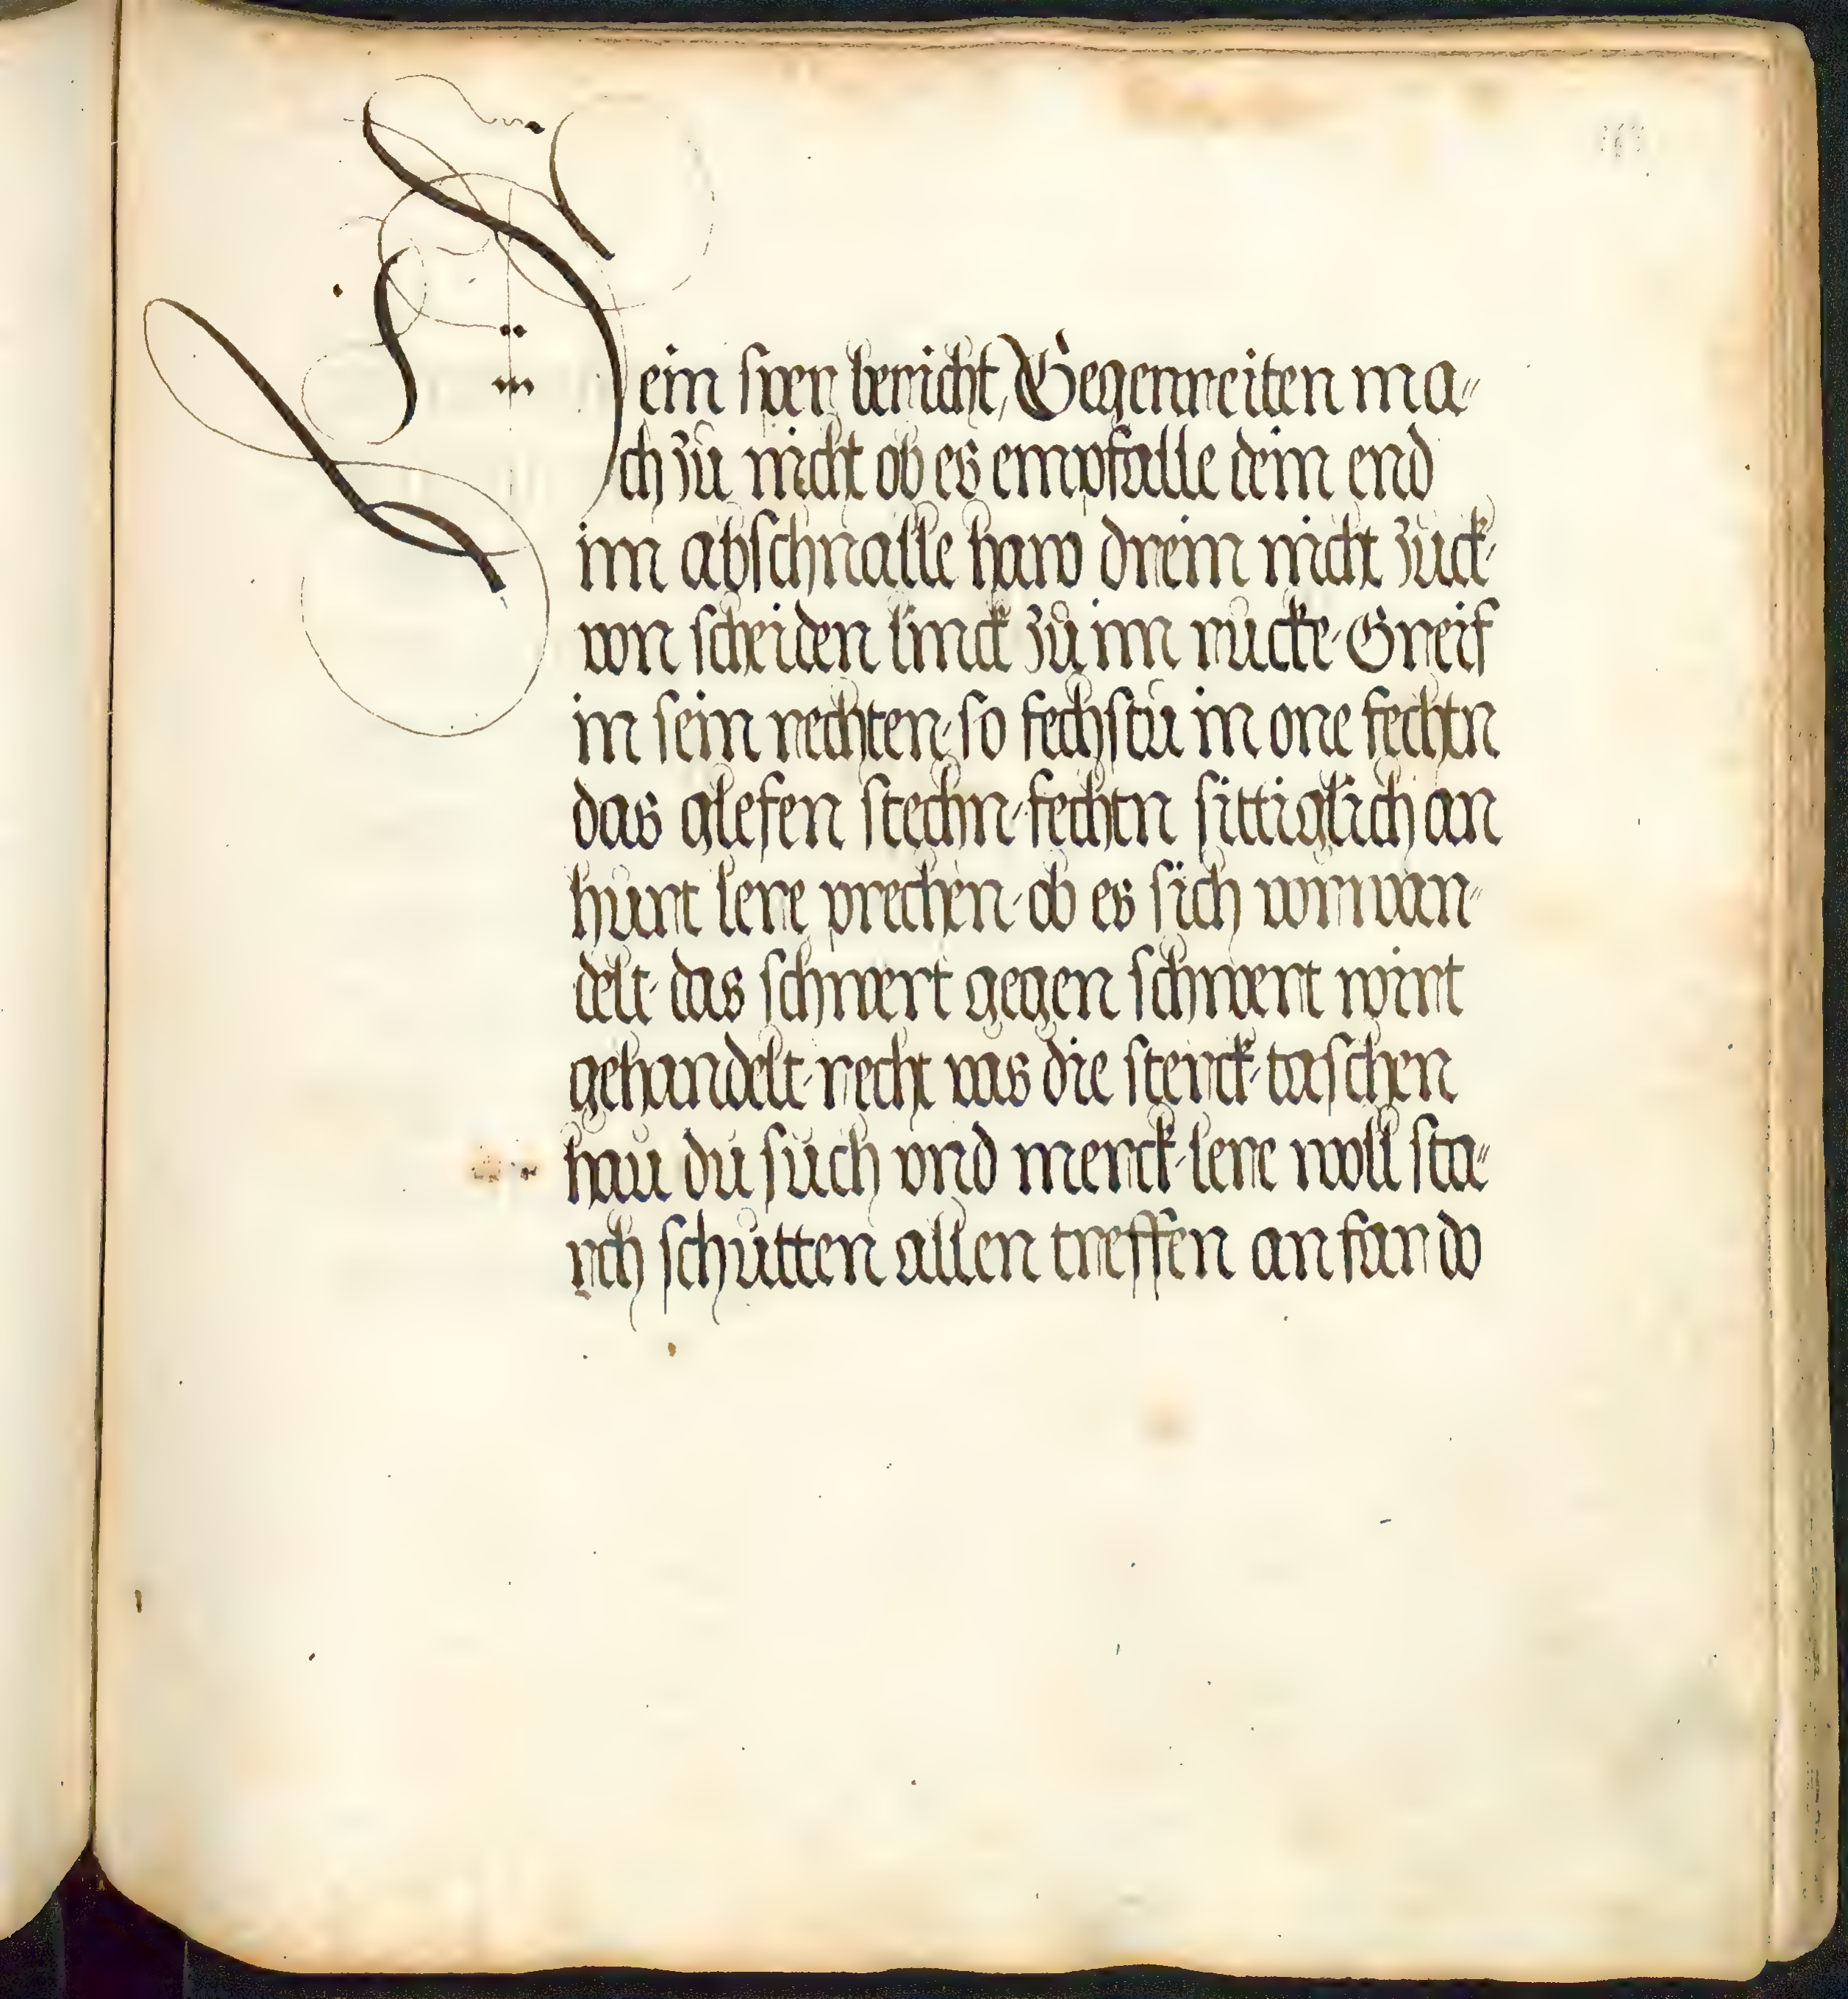 Dein sper bericht, Gegenreiten ma„
ch zu nicht ob es empfalle dein end
im abschnalle haw drein nicht zuck
von scheiden linck zů im rucke Greif
in sein rechten so fechstu in one fechtn
das glefen stechn fechtn sittiglich an
hurt lere prechen ob es sich vmwan„
delt das schwert gegen schwert wirt
gehandelt recht vas die sterck taschen
hau du such vnd merck lere woll sta„
rch schutten allen treffen an far do